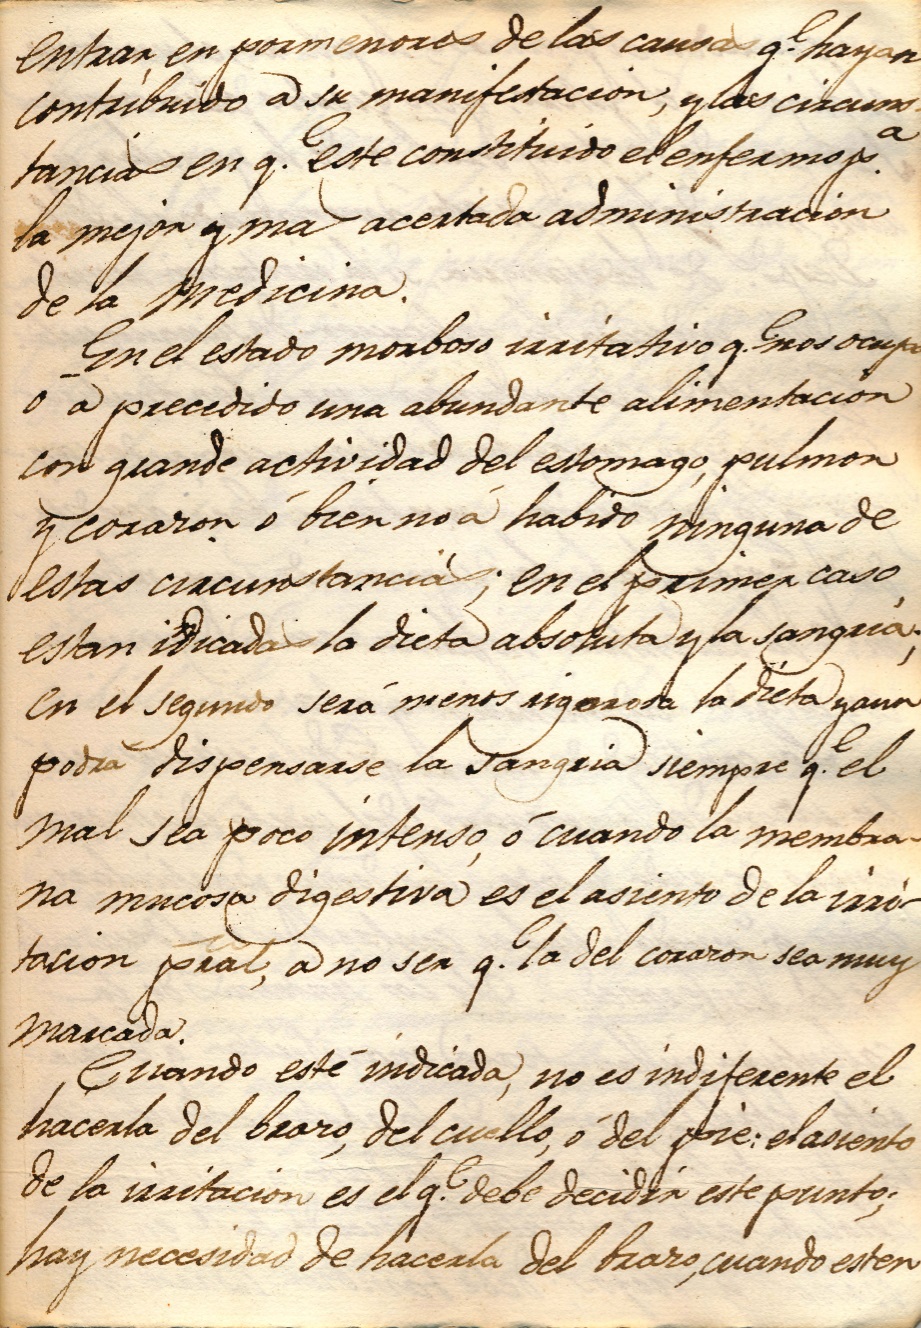 entrar en pormenores de las causas q.e hayan
contribuido a su manifestacion, y las circuns-
tancias en q.e este constituido el enfermo p.a
la mejor y mas acertada administracion
de la Medicina.
En el estado morboso irritativo q.e nos ocupa
ó a precedido una abundante alimentacion
con grande actividad del estomago, pulmon
y corazon ó bien no á habido ninguna de
estas circunstancias; en el primer caso
estan idicadas la dieta absoluta y la sangria;
en el segundo será menos rigorosa la dieta y aun
podrá dispensarse la sangria siempre q.e el
mal sea poco intenso, ó cuando la membra-
na mucosa digestiva es el asiento de la irri-
tacion pral, a no ser q.e la del corazon sea muy
marcada.
Cuando esté indicada, no es indiferente el
hacerla del brazo, del cuello, ó del pie: el asiento
de la irritacion es el q.e debe decidir este punto;
hay necesidad de hacerla del brazo, cuando esten